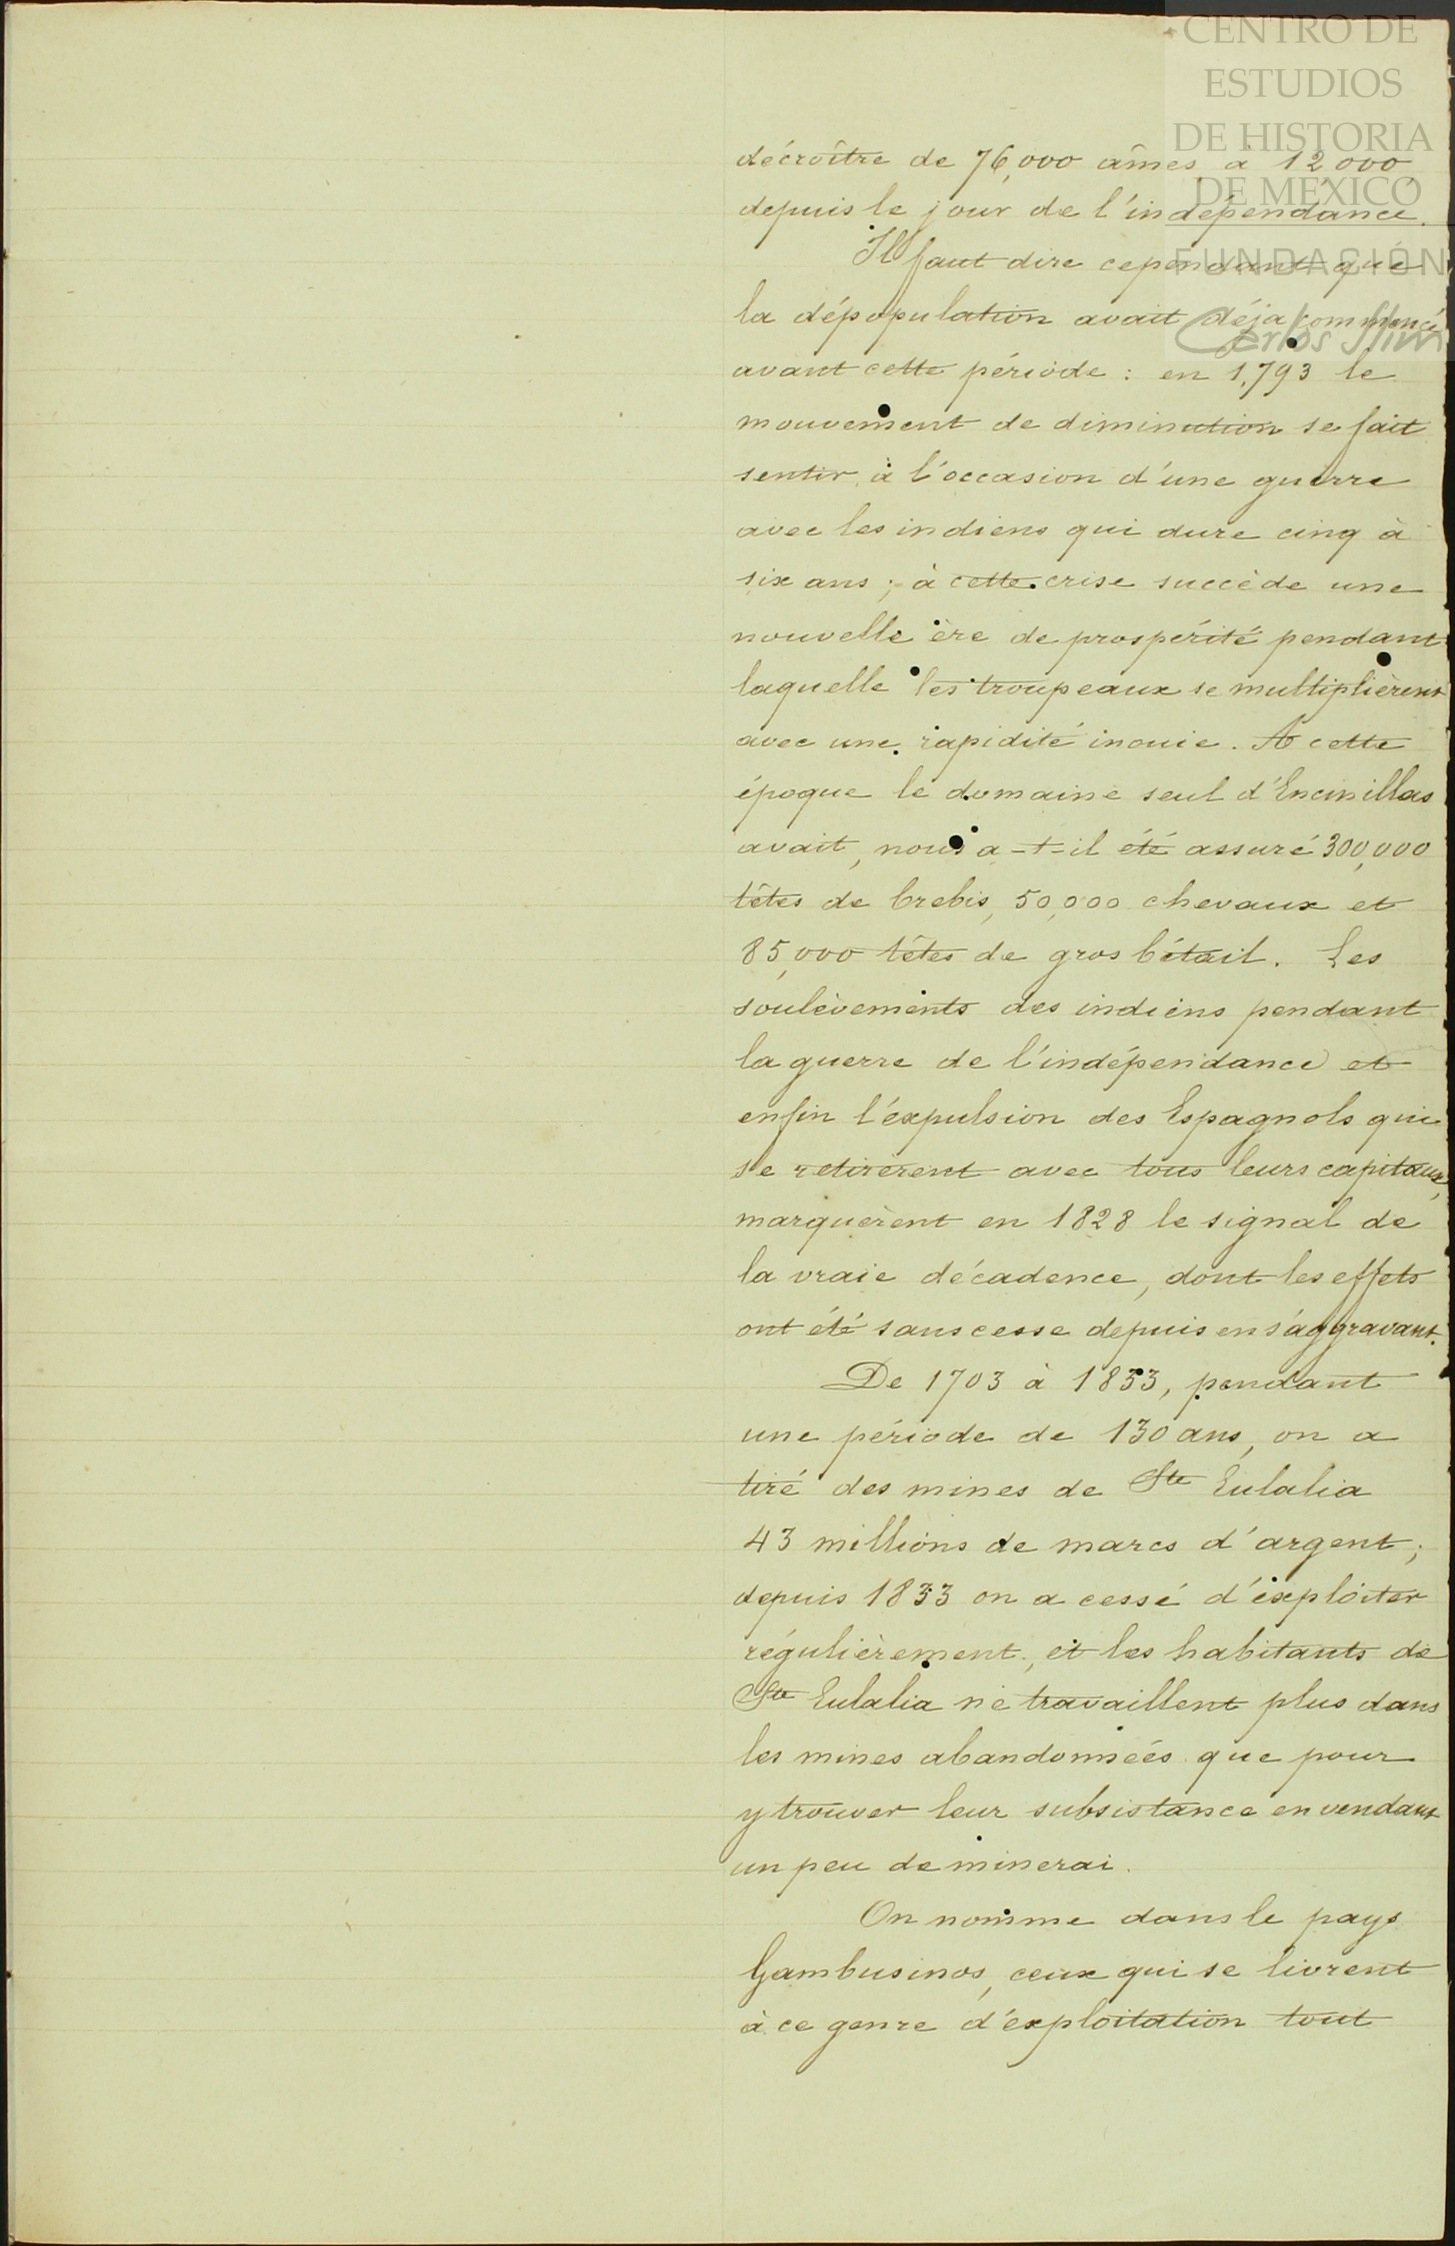 CENTRO DE
ESTUDIOS
DE HISTORIA
DE MÉXICO
FUNDACIÓN
Carlos Slim
décroître de 76,000 âmes à 12000,
depuis le jour de l'indépendance.
Il faut dire cependant que
la dépopulation avait déja commencé
avant cette période : en 1,793 le
mouvement de diminution se fait
sentir à l'occasion d'une guerre
avec les indiens qui dure cinq à
six ans ; à cette crise succède une
nouvelle ère de prospérité pendant
laquelle les troupeaux se multiplièrent
avec une rapidité inouie. A cette
époque le domaine seul d'Encinillas
avait, nous a-t-il été assuré 300,000
têtes de brebis, 50,000 chevaux et
85,000 têtes de gros bétail. Les
soulèvements des indiens pendant
la guerre de l'indépendance et
enfin l'expulsion des Espagnols qui
se retirèrent avec tous leurs capitaux,
marquèrent en 1828 le signal de
la vraie décadence, dont les effets
ont été sans cesse depuis en s'aggravant.
De 1703 à 1833, pendant
une période de 130 ans, on a
tiré des mines de Ste Eulalia
43 millions de marcs d'argent ;
depuis 1833 on a cessé d'exploiter
régulièrement, et les habitants de
Ste Eulalia ne travaillent plus dans
les mines abandonnéés que pour
y trouver leur subsistance en vendant
un peu de minerai.
On nomme dans le pays
Gambusinos, ceux qui se livrent
à ce genre d'exploitation tout